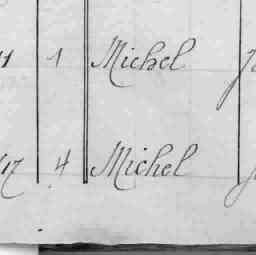 1 Michel
4 Michel